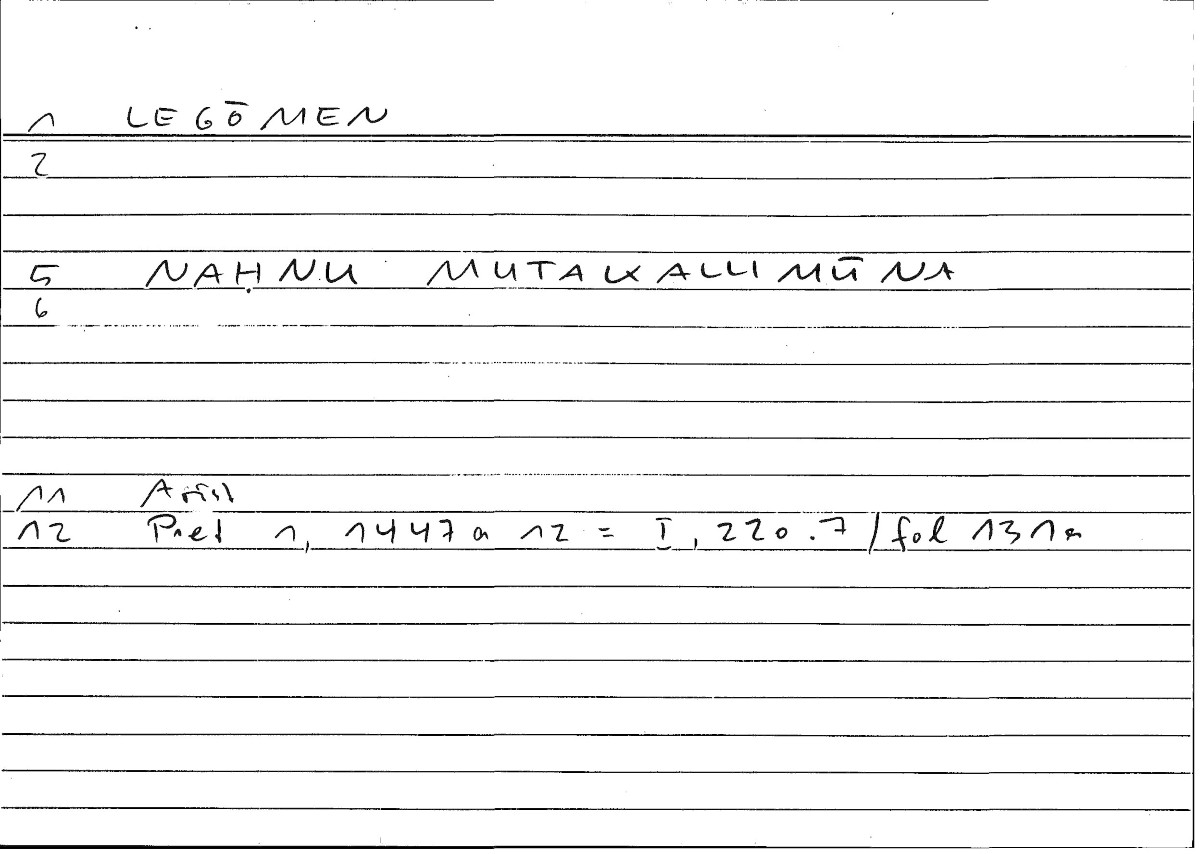 1 LEGŌMEN
2
5 NAḤNU MUTAKALLIMŪNA
6
11 Arist
12 Poet 1, 1447a 12 = I, 220.7 / fol 131a